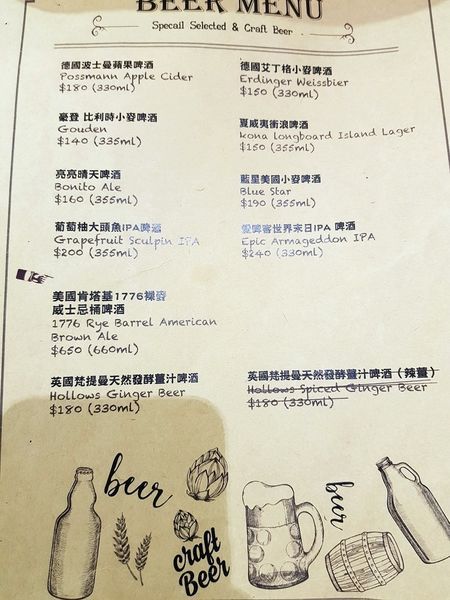 BEER MENU
Specail Selected & Craft Beer
德國波士曼蘋果啤酒
Possmann Apple Cider
$180 (330ml)
德國艾丁格小麥啤酒
Erdinger Weissbier
$150 (330ml)
豪登 比利時小麥啤酒
Gouden
$140 (335ml)
夏威夷衝浪啤酒
kona longboard Island Lager
$150 (355ml)
亮亮晴天啤酒
Bonito Ale
$160 (355ml)
藍星美國小麥啤酒
Blue Star
$190 (355ml)
葡萄柚大頭魚IPA啤酒
Grapefruit Sculpin IPA
$200 (355ml)
愛啤客世界末日IPA 啤酒
Epic Armageddon IPA
$240 (330ml)
美國肯塔基1776裸麥
威士忌桶啤酒
1776 Rye Barrel American
Brown Ale
$650 (660ml)
英國梵提曼天然發酵薑汁啤酒
Hollows Ginger Beer
$180 (330ml)
英國梵提曼天然發酵薑汁啤酒（辣薑）
Hollows Spiced Ginger Beer
$180 (330ml)
beer
craft
Beer
beer